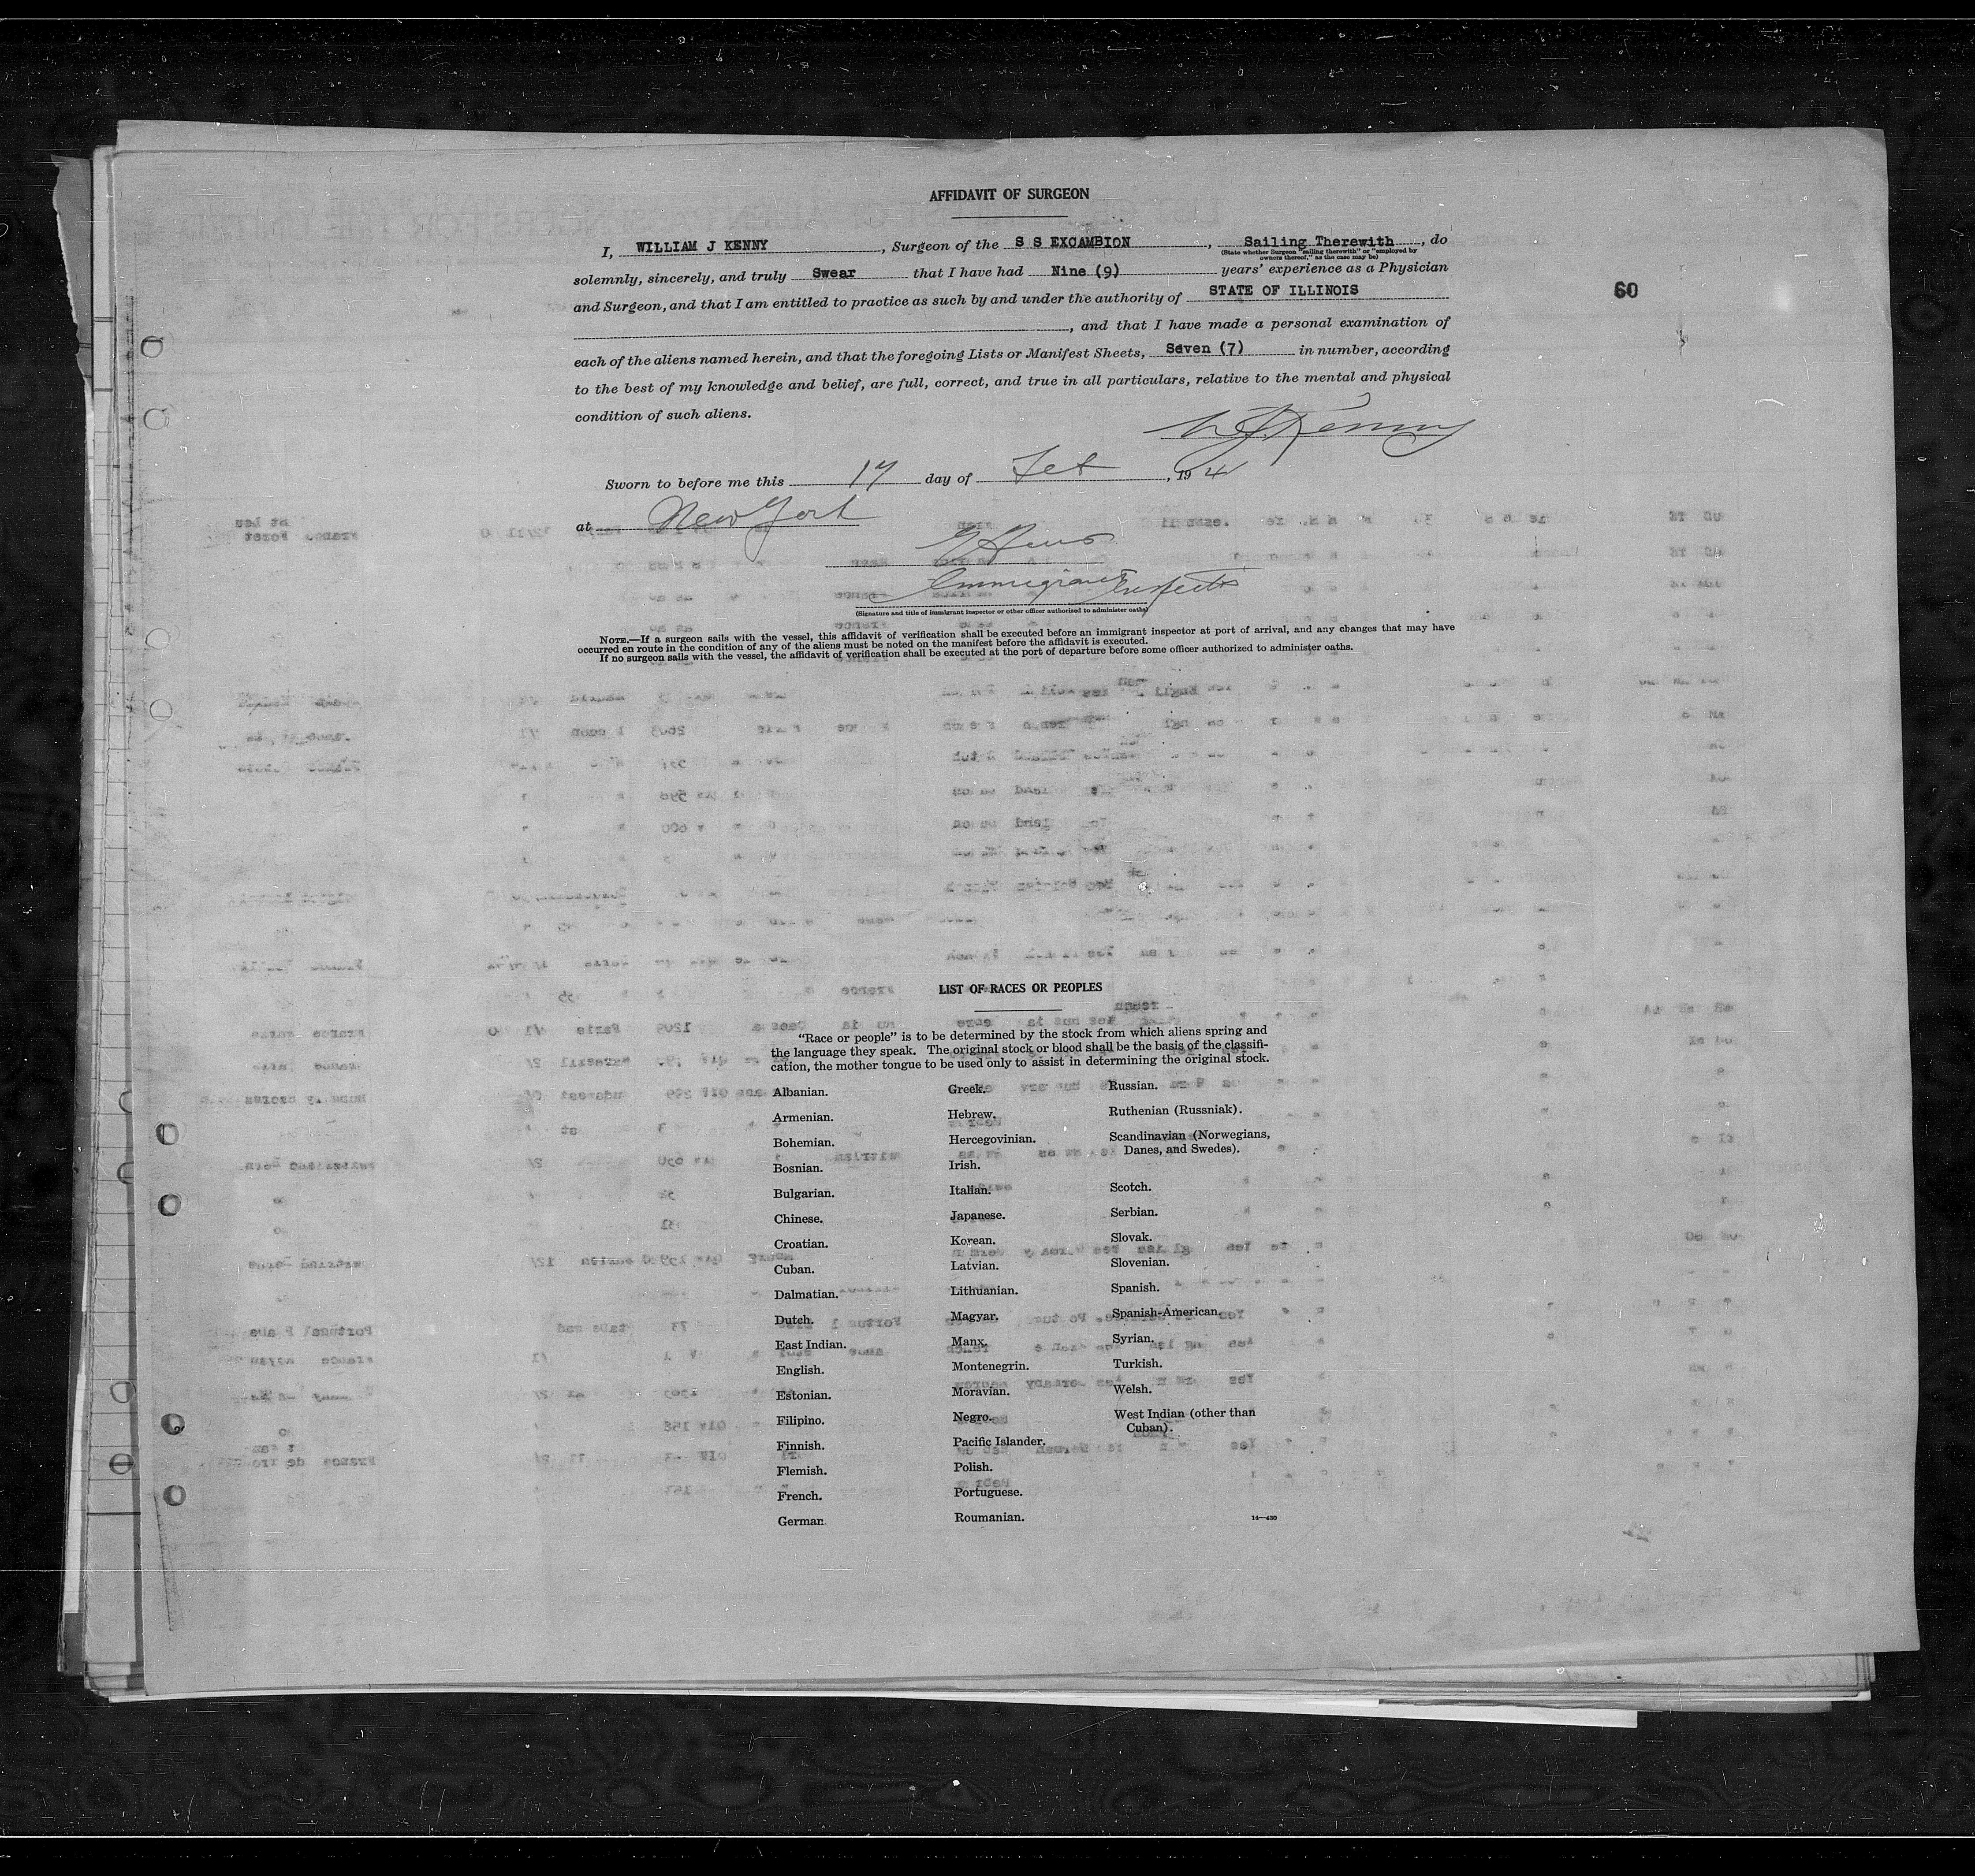 AFFIDAVIT OF SURGEON
I, WILLIAM J KENNY, Surgeon of the S S EXCAMBION, Sailing Therewith, do
(State whether Surgeon "sailing therewith" or "employed by
owners thereof," as the case may be)
solemnly, sincerely, and truly Swear that I have had Nine (9) years' experience as a Physician
and Surgeon, and that I am entitled to practice as such by and under the authority of STATE OF ILLINOIS
60
, and that I have made a personal examination of
each of the aliens named herein, and that the foregoing Lists or Manifest Sheets, Seven (7) in number, according
to the best of my knowledge and belief, are full, correct, and true in all particulars, relative to the mental and physical
condition of such aliens.
W J Kenny
Sworn to before me this 17 day of Feb, 194
at New York
Immigrant Inspector
(Signature and title of immigrant inspector or other officer authorized to administer oaths)
NOTE.—If a surgeon sails with the vessel, this affidavit of verification shall be executed before an immigrant inspector at port of arrival, and any changes that may have
occurred en route in the condition of any of the aliens must be noted on the manifest before the affidavit is executed.
If no surgeon sails with the vessel, the affidavit of verification shall be executed at the port of departure before some officer authorized to administer oaths.
LIST OF RACES OR PEOPLES
"Race or people" is to be determined by the stock from which aliens spring and
the language they speak. The original stock or blood shall be the basis of the classifi-
cation, the mother tongue to be used only to assist in determining the original stock.
Albanian.
Armenian.
Bohemian.
Bosnian.
Bulgarian.
Chinese.
Croatian.
Cuban.
Dalmatian.
Dutch.
East Indian.
English.
Estonian.
Filipino.
Finnish.
Flemish.
French.
German
Greek.
Hebrew.
Hercegovinian.
Irish.
Italian.
Japanese.
Korean.
Latvian.
Lithuanian.
Magyar.
Manx.
Montenegrin.
Moravian.
Negro.
Pacific Islander.
Polish.
Portuguese.
Roumanian.
Russian.
Ruthenian (Russniak).
Scandinavian (Norwegians,
Danes, and Swedes).
Scotch.
Serbian.
Slovak.
Slovenian.
Spanish.
Spanish-American.
Syrian.
Turkish.
Welsh.
West Indian (other than
Cuban).
14—430